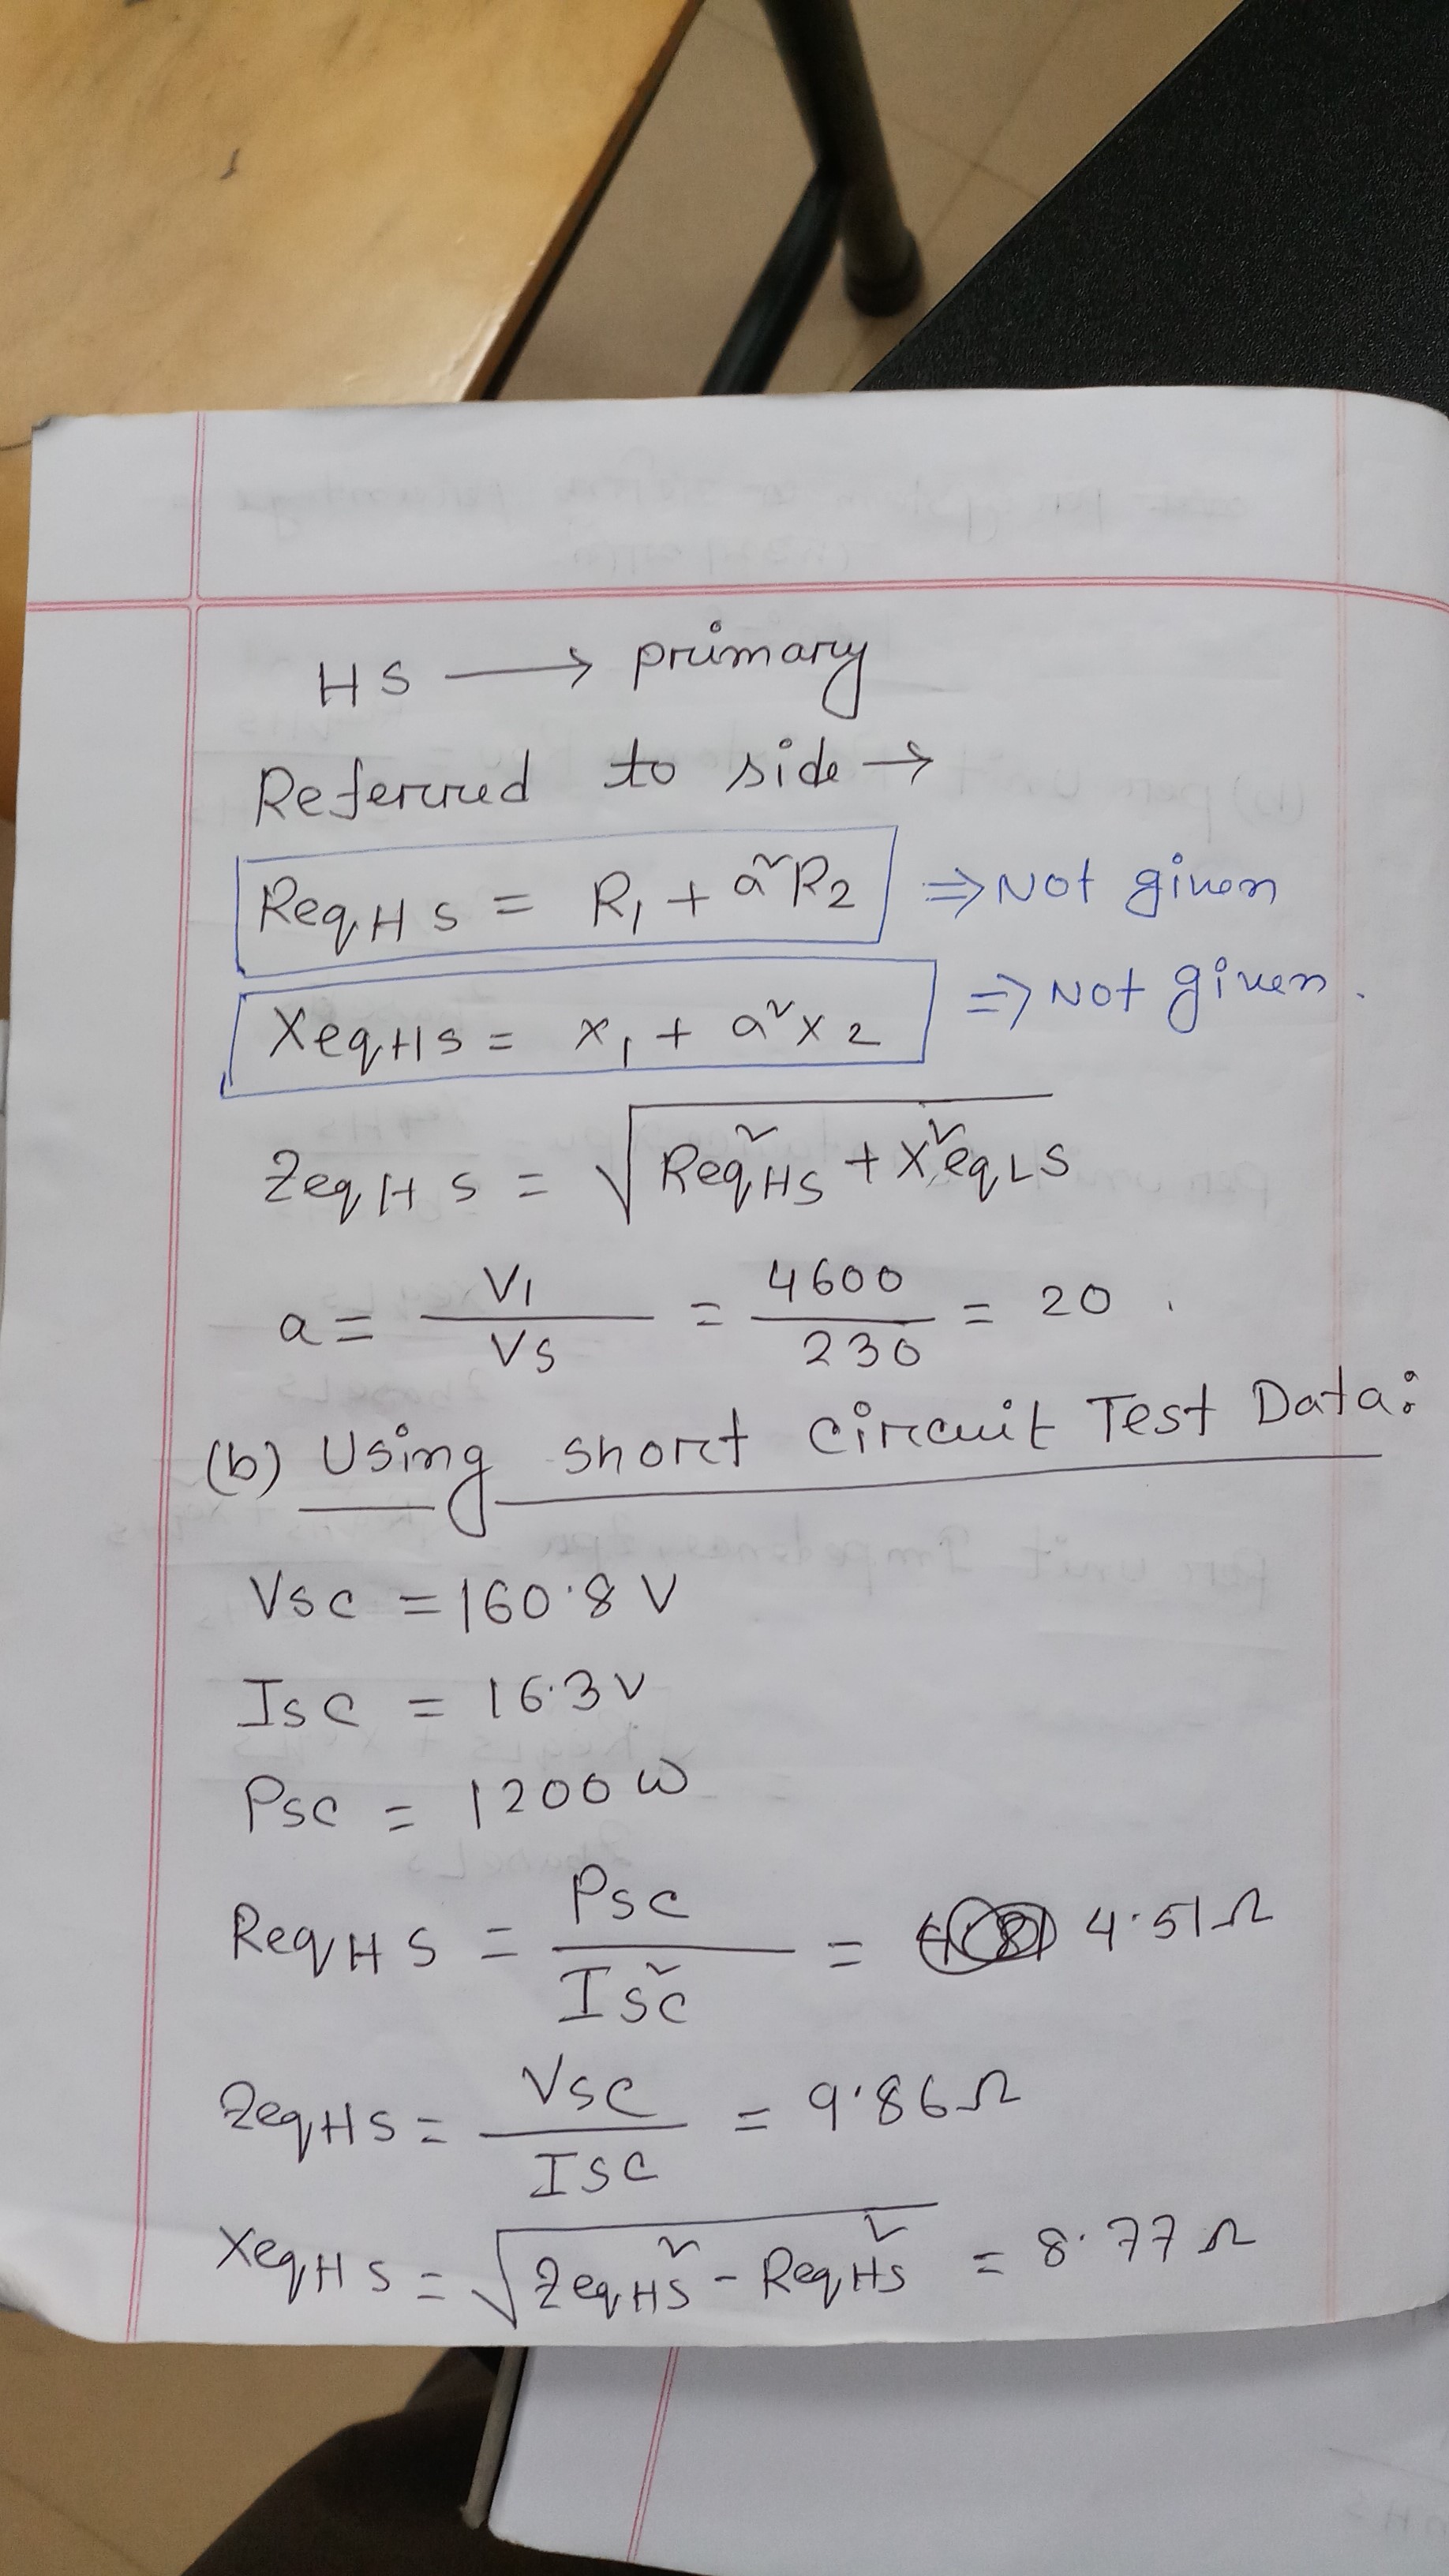 HS → primary
Referred to side →
ReqHS = R1 + a²R2 ⇒ Not given
XeqHS = x1 + a²x2 ⇒ Not given.
ZeqHS = √(Req²HS + X²eqLS)
a = V1/VS = 4600/230 = 20
(b) Using short circuit Test Data:
Vsc = 160.8 V
Isc = 16.3 V
Psc = 1200 W
ReqHS = Psc/Isc² = 4.51Ω
ZeqHS = Vsc/Isc = 9.86Ω
XeqHS = √(ZeqHS² - ReqHS²) = 8.77Ω